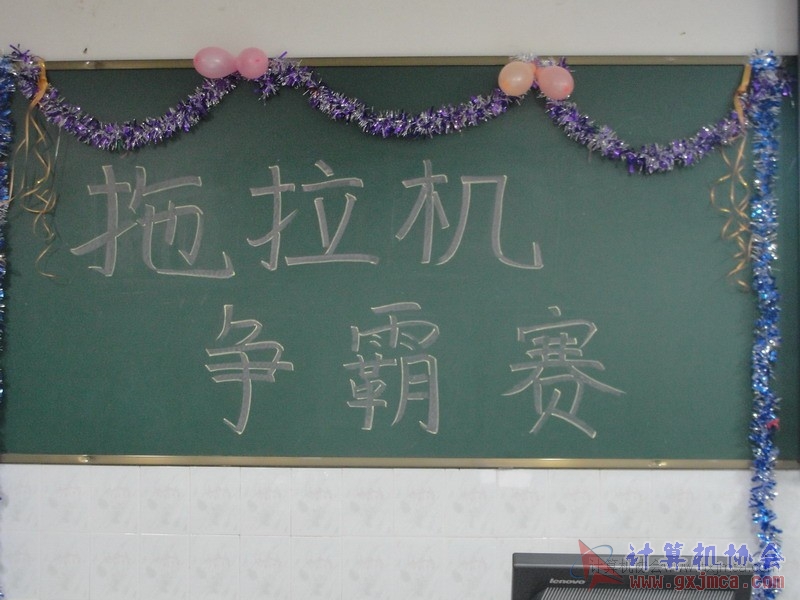 拖拉机
争霸赛
lenovo
计算机协会
www.gxjmca.com